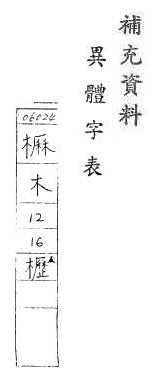 補充資料
異體字表
06024
木
12
16
櫪▲